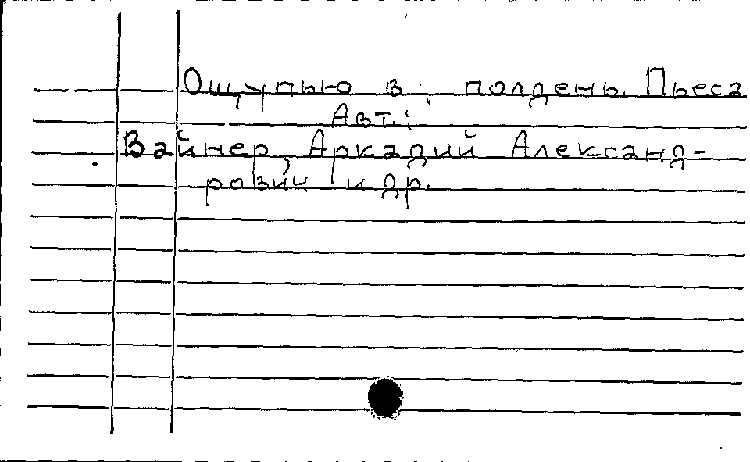 Ощупью в полдень. Пьеса
Авт.:
Вайнер, Аркадий Александ-
рович и др.